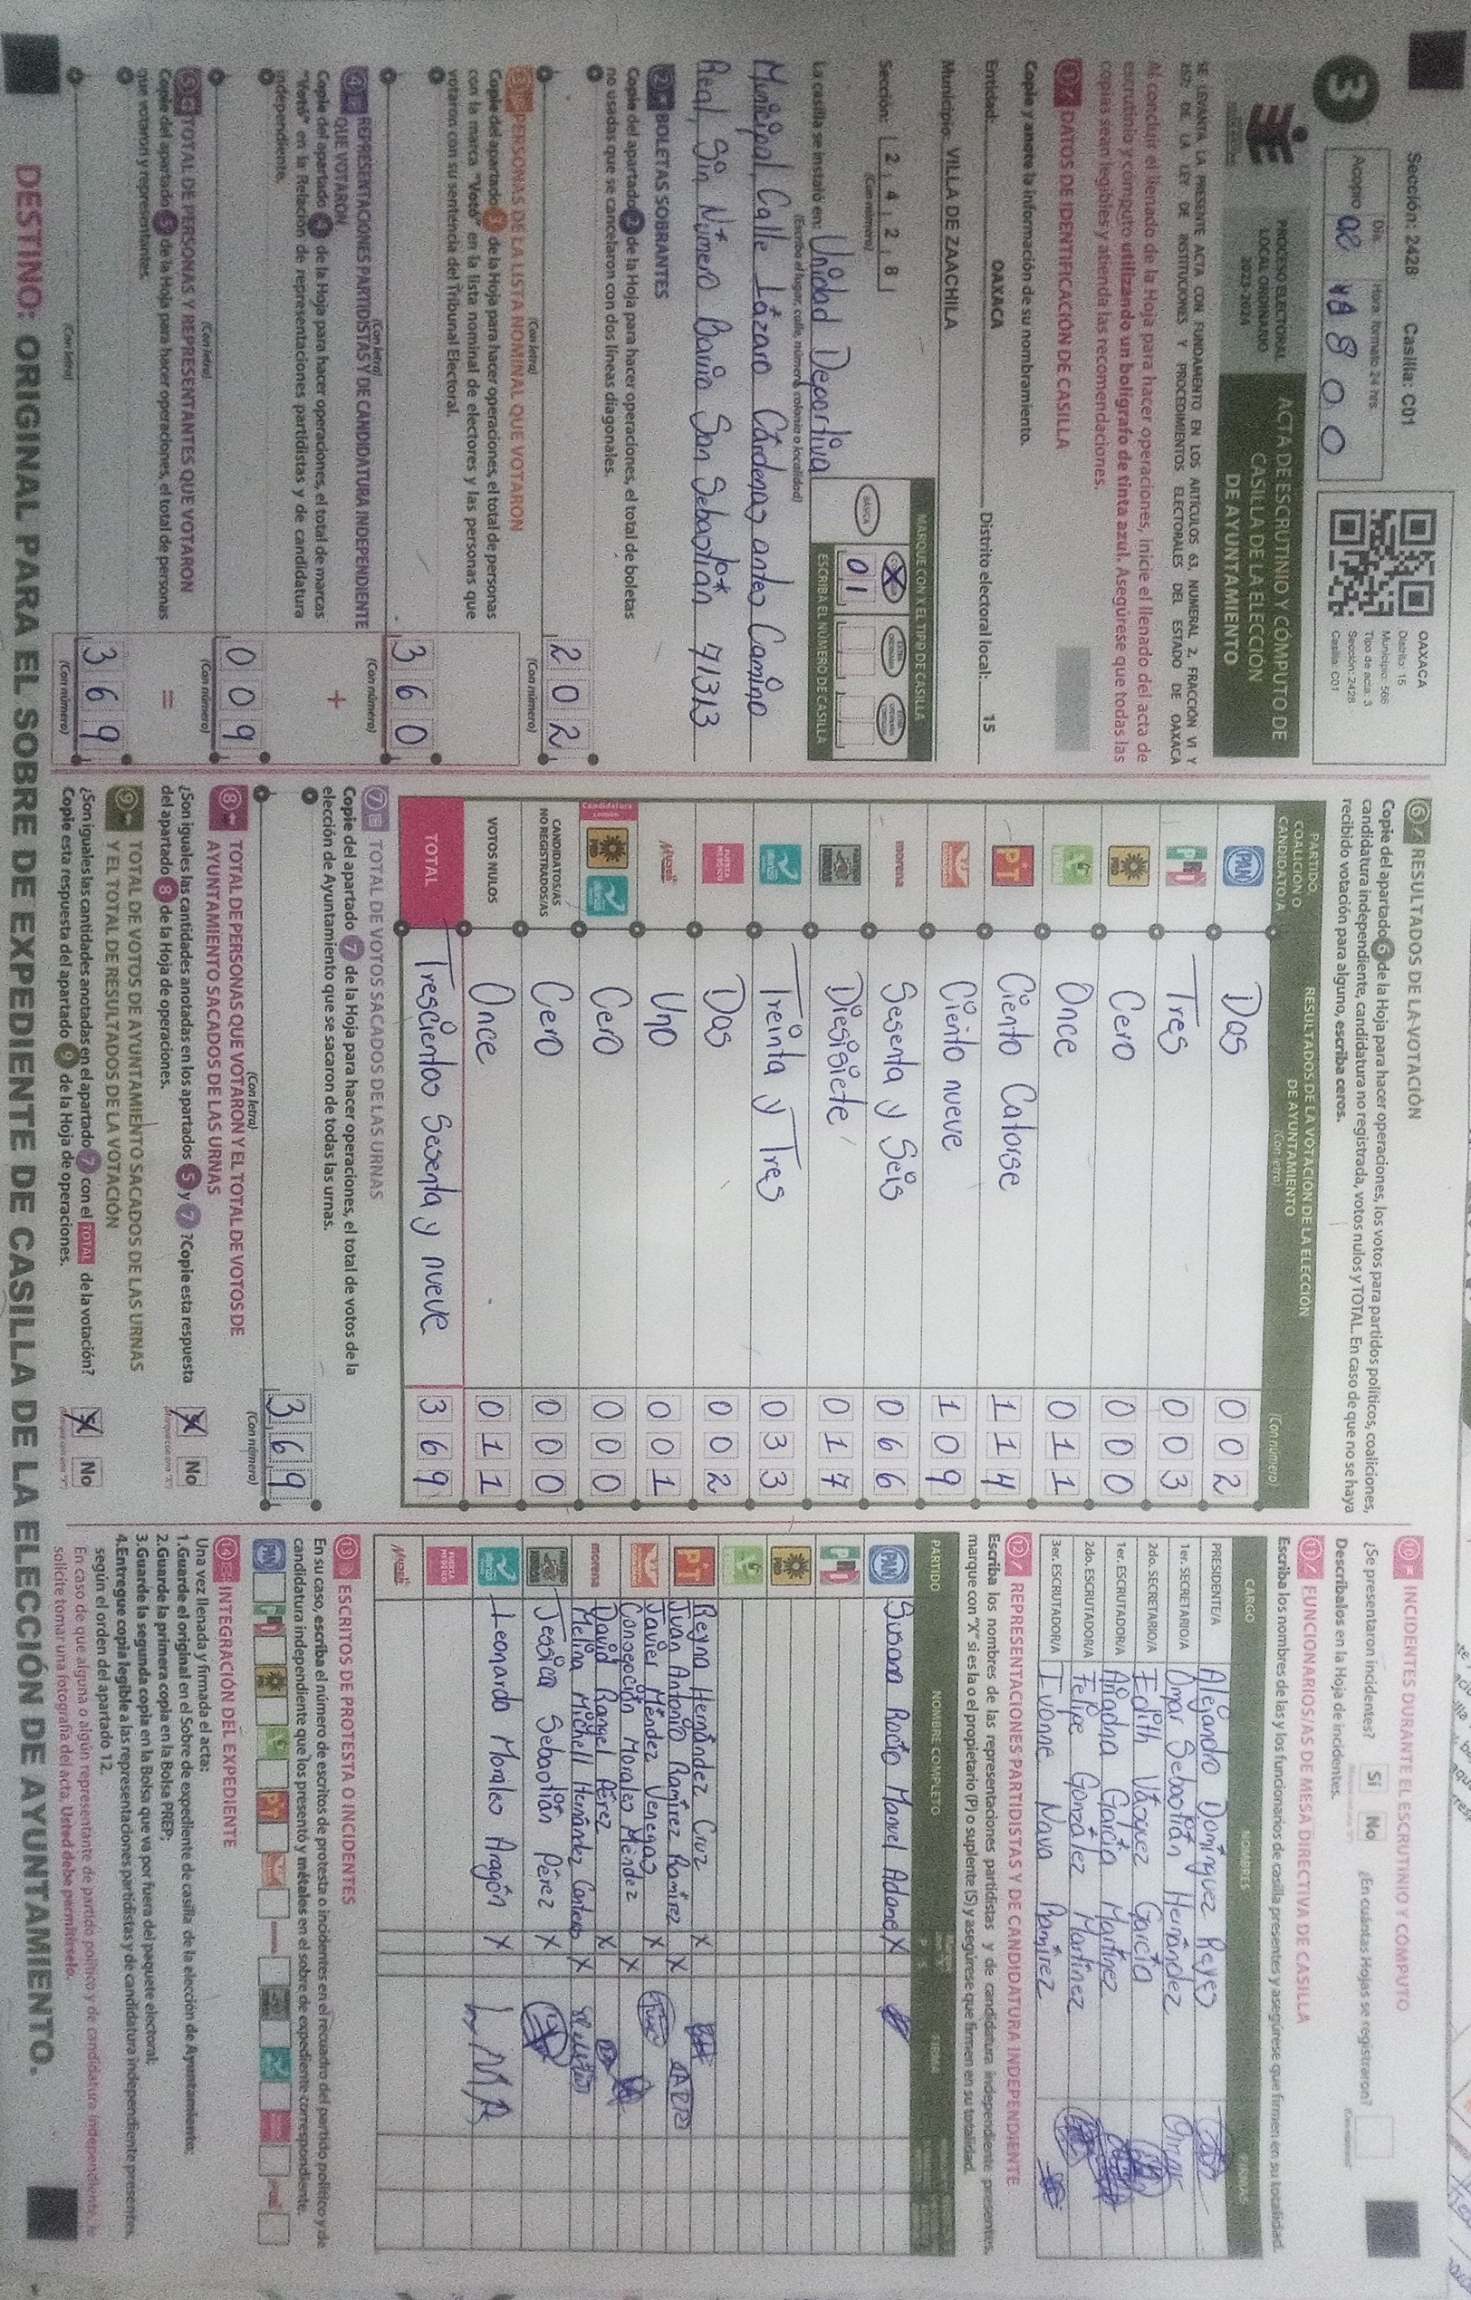 Sección: 2428 Casilla: C01
3
Día Hora: formato 24 hrs.
Acopio
OAXACA
Distrito: 15
Municipio: 566
Tipo de acta: 3
Sección: 2428
Casilla: C01
PROCESO ELECTORAL
LOCAL ORDINARIO
2023-2024
ACTA DE ESCRUTINIO Y CÓMPUTO DE
CASILLA DE LA ELECCIÓN
DE AYUNTAMIENTO
SE LEVANTA LA PRESENTE ACTA CON FUNDAMENTO EN LOS ARTÍCULOS 63, NUMERAL 2, FRACCIÓN VI Y
DE LA LEY DE INSTITUCIONES Y PROCEDIMIENTOS ELECTORALES DEL ESTADO DE OAXACA
Al concluir el llenado de la Hoja para hacer operaciones, inicie el llenado del acta de
escrutinio y cómputo utilizando un bolígrafo de tinta azul. Asegúrese que todas las
copias sean legibles y atienda las recomendaciones.
1 DATOS DE IDENTIFICACIÓN DE CASILLA
Copie y anote la información de su nombramiento.
Entidad: OAXACA Distrito electoral local: 15
Municipio: VILLA DE ZAACHILA
Sección: 2 4 2 8
(Con número)
MARQUE CON X EL TIPO DE CASILLA
BÁSICA
X
0 1
ESCRIBA EL NÚMERO DE CASILLA
La casilla se instaló en: Unidad Deportiva
(Escriba el lugar, calle, número, colonia o localidad)
Municipal, Calle Lázaro Cárdenas antes Camino
Real, Sin Número Barrio San Sebastián 71313
2 BOLETAS SOBRANTES
Copie del apartado 2 de la Hoja para hacer operaciones, el total de boletas
no usadas que se cancelaron con dos líneas diagonales.
(Con letra) 202 (Con número)
3 PERSONAS DE LA LISTA NOMINAL QUE VOTARON
Copie del apartado 3 de la Hoja para hacer operaciones, el total de personas
con la marca "Votó" en la lista nominal de electores y las personas que
votaron con su sentencia del Tribunal Electoral.
(Con letra) 360 (Con número)
4 REPRESENTACIONES PARTIDISTAS Y DE CANDIDATURA INDEPENDIENTE
QUE VOTARON
+
Copie del apartado 4 de la Hoja para hacer operaciones, el total de marcas
"Votó" en la Relación de representaciones partidistas y de candidatura
independiente.
(Con letra) 009 (Con número)
5 TOTAL DE PERSONAS Y REPRESENTANTES QUE VOTARON
=
Copie del apartado 5 de la Hoja para hacer operaciones, el total de personas
que votaron y representantes.
(Con letra) 369 (Con número)
6 RESULTADOS DE LA VOTACIÓN
Copie del apartado 6 de la Hoja para hacer operaciones, los votos para partidos políticos, coaliciones,
candidatura independiente, candidatura no registrada, votos nulos y TOTAL. En caso de que no se haya
recibido votación para alguno, escriba ceros.
PARTIDO, COALICIÓN O CANDIDATO/A
RESULTADOS DE LA VOTACIÓN DE LA ELECCIÓN
DE AYUNTAMIENTO
(Con letra) (Con número)
PAN Dos 002
PRI Tres 003
PRD Cero 000
Once 011
PT Ciento Catorse 114
Ciento nueve 109
morena Sesenta y Seis 066
Diesisiete 017
Treinta y Tres 033
FUERZA MÉXICO Dos 002
Uno 001
Candidatura común PRD Cero 000
CANDIDATOS/AS NO REGISTRADOS/AS Cero 000
VOTOS NULOS Once 011
TOTAL Trescientos Sesenta y nueve 369
7 TOTAL DE VOTOS SACADOS DE LAS URNAS
Copie del apartado 7 de la Hoja para hacer operaciones, el total de votos de la
elección de Ayuntamiento que se sacaron de todas las urnas.
(Con letra) 369 (Con número)
8 TOTAL DE PERSONAS QUE VOTARON Y EL TOTAL DE VOTOS DE
AYUNTAMIENTO SACADOS DE LAS URNAS
¿Son iguales las cantidades anotadas en los apartados 5 y 7? Copie esta respuesta
del apartado 8 de la Hoja de operaciones.
X No
9 TOTAL DE VOTOS DE AYUNTAMIENTO SACADOS DE LAS URNAS
Y EL TOTAL DE RESULTADOS DE LA VOTACIÓN
¿Son iguales las cantidades anotadas en el apartado 7 con el TOTAL de la votación?
Copie esta respuesta del apartado 9 de la Hoja de operaciones.
X No
10 INCIDENTES DURANTE EL ESCRUTINIO Y CÓMPUTO
¿Se presentaron incidentes? Sí No ¿En cuántas Hojas se registraron?
Descríbalos en la Hoja de incidentes.
11 FUNCIONARIOS/AS DE MESA DIRECTIVA DE CASILLA
Escriba los nombres de las y los funcionarios de casilla presentes y asegúrese que firmen en su totalidad.
CARGO NOMBRES FIRMAS
PRESIDENTE/A Alejandro Domínguez Reyes
1er. SECRETARIO/A Omar Sebastián Hernández
2do. SECRETARIO/A Edith Vásquez García
1er. ESCRUTADOR/A Ariadna García Martínez
2do. ESCRUTADOR/A Felipe González Martínez
3er. ESCRUTADOR/A Ivonne Nava Ramírez
12 REPRESENTACIONES PARTIDISTAS Y DE CANDIDATURA INDEPENDIENTE
Escriba los nombres de las representaciones partidistas y de candidatura independiente presentes,
marque con "X" si es la o el propietario (P) o suplente (S) y asegúrese que firmen en su totalidad.
PARTIDO NOMBRE COMPLETO P S FIRMA
PAN Susana Rocío Manuel Adame X
PRI
PRD
PT Reyna Hernández Cruz X
Juan Antonio Ramírez Ramírez X
Javier Méndez Venegas X
Concepción Morales Méndez X
morena David Rangel Pérez X
Melina Michell Hernández X
Jessica Sebastián Pérez X
Leonardo Morales Aragón X
FUERZA MÉXICO
13 ESCRITOS DE PROTESTA O INCIDENTES
En su caso, escriba el número de escritos de protesta o incidentes en el recuadro del partido político y de
candidatura independiente que los presentó y métalos en el sobre de expediente correspondiente.
PAN PT
14 INTEGRACIÓN DEL EXPEDIENTE
Una vez llenada y firmada el acta:
1.Guarde el original en el Sobre de expediente de casilla de la elección de Ayuntamiento;
2.Guarde la primera copia en la Bolsa PREP;
3.Guarde la segunda copia en la Bolsa que va por fuera del paquete electoral;
4.Entregue copia legible a las representaciones partidistas y de candidatura independiente presentes,
según el orden del apartado 12.
En caso de que alguna o algún representante de partido político y de candidatura independiente, le
solicite tomar una fotografía del acta, Usted debe permitírselo.
DESTINO: ORIGINAL PARA EL SOBRE DE EXPEDIENTE DE CASILLA DE LA ELECCIÓN DE AYUNTAMIENTO.